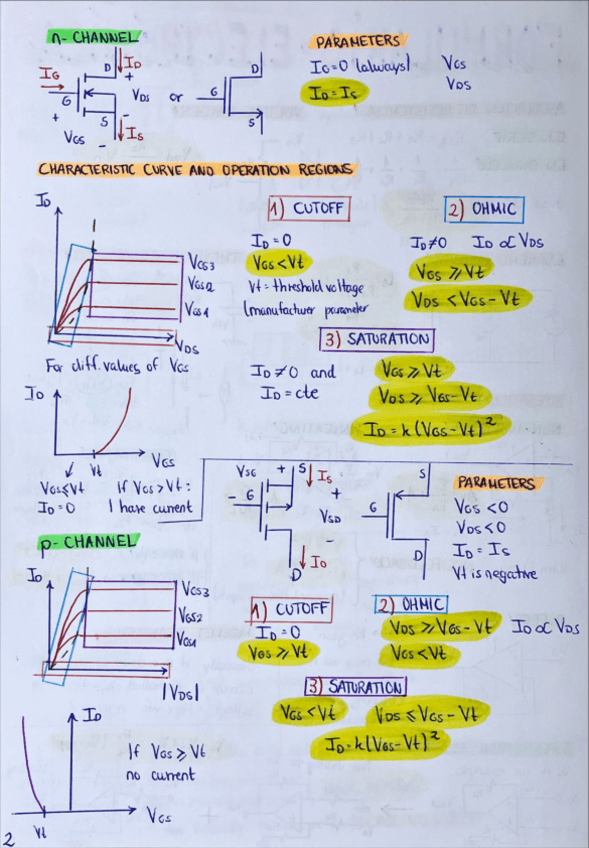 n-CHANNEL
PARAMETERS
D
ID
IG
+
G
VDS
S
+
VGS
-
-
IS
or
D
G
S
IG=0 (always)
VGS
ID=IS
VDS
CHARACTERISTIC CURVE AND OPERATION REGIONS
ID
VGS3
VGS2
VGS1
VDS
For diff. values of VGS
1) CUTOFF
ID=0
VGS<Vt
Vt= threshold voltage
(manufactuer parameter
2) OHMIC
ID≠0 ID∝VDS
VGS⩾Vt
VDS<VGS-Vt
3) SATURATION
ID≠0 and
ID=cte
VGS⩾Vt
VDS⩾VGS-Vt
ID=k(VGS-Vt)²
ID
Vt
VGS
VGS⩽Vt
ID=0
If VGS>Vt:
I have current
VSG
+
S
IS
-
G
+
VSD
-
D
ID
S
G
D
PARAMETERS
VGS<0
VDS<0
ID=IS
Vt is negative
p-CHANNEL
ID
VGS3
VGS2
VGS1
|VDS|
1) CUTOFF
ID=0
VGS⩾Vt
2) OHMIC
VDS⩾VGS-Vt ID∝VDS
VGS<Vt
3) SATURATION
VGS<Vt VDS⩽VGS-Vt
ID=k(VGS-Vt)²
ID
If VGS⩾Vt
no current
VGS
Vt
2